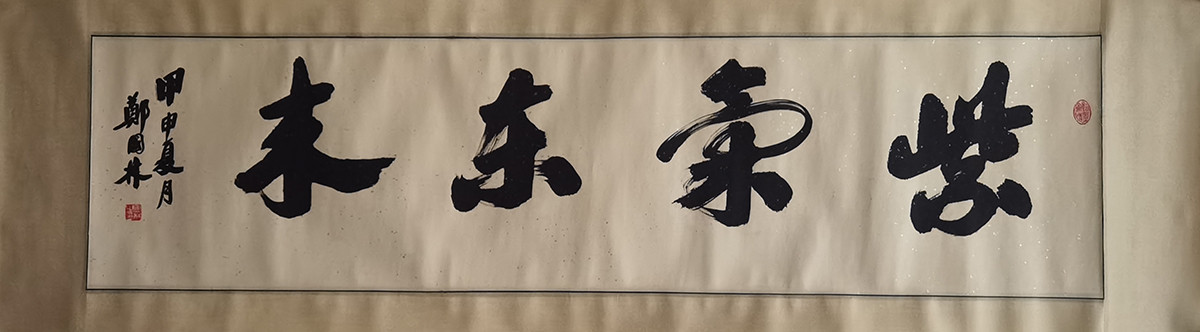 紫氣东来
甲申夏月
鄭国林